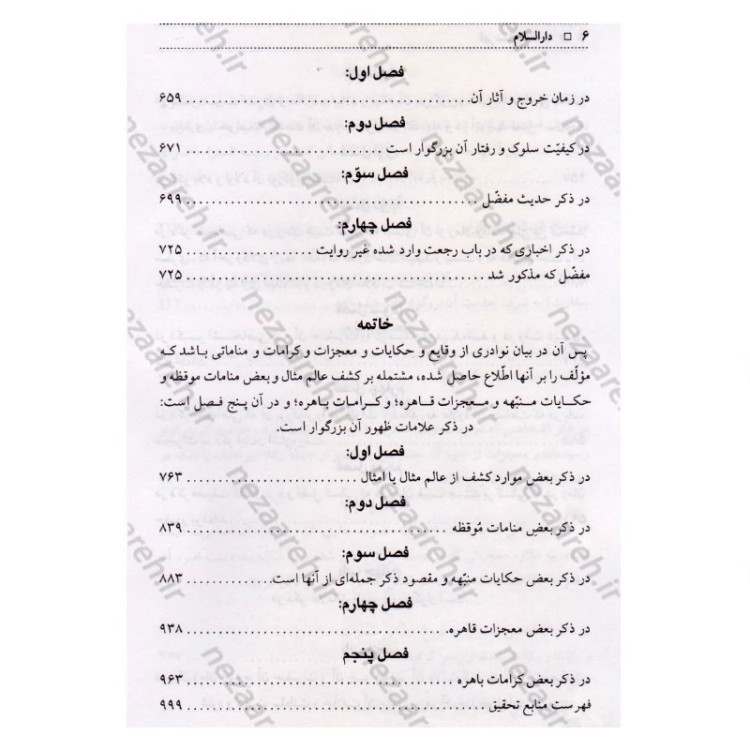 ۶ □ دارالسلام
فصل اول:
در زمان خروج و آثار آن. ۶۵۹
فصل دوم:
در کیفیّت سلوک و رفتار آن بزرگوار است ۶۷۱
فصل سوّم:
در ذکر حدیث مفضّل ۶۹۹
فصل چهارم:
در ذکر اخباری که در باب رجعت وارد شده غیر روایت ۷۲۵
مفضّل که مذکور شد ۷۲۵
خاتمه
پس آن در بیان نوادری از وقایع و حکایات و معجزات و کرامات و مناماتی باشد که
مؤلّف را بر آنها اطّلاع حاصل شده، مشتمله بر کشف عالم مثال و بعض منامات موقظه و
حکایات منبّهه و معجزات قاهره؛ و کرامات باهره؛ و در آن پنج فصل است:
در ذکر علامات ظهور آن بزرگوار است.
فصل اول:
در ذکر بعض موارد کشف از عالم مثال یا امثال ۷۶۳
فصل دوم:
در ذکر بعض منامات مُوقظه ۸۳۹
فصل سوم:
در ذکر بعض حکایات منبّهه و مقصود ذکر جمله‌ای از آنها است. ۸۸۳
فصل چهارم:
در ذکر بعض معجزات قاهره. ۹۳۸
فصل پنجم
در ذکر بعض کرامات باهره ۹۶۳
فهرست منابع تحقیق ۹۹۹
nezaareh.ir